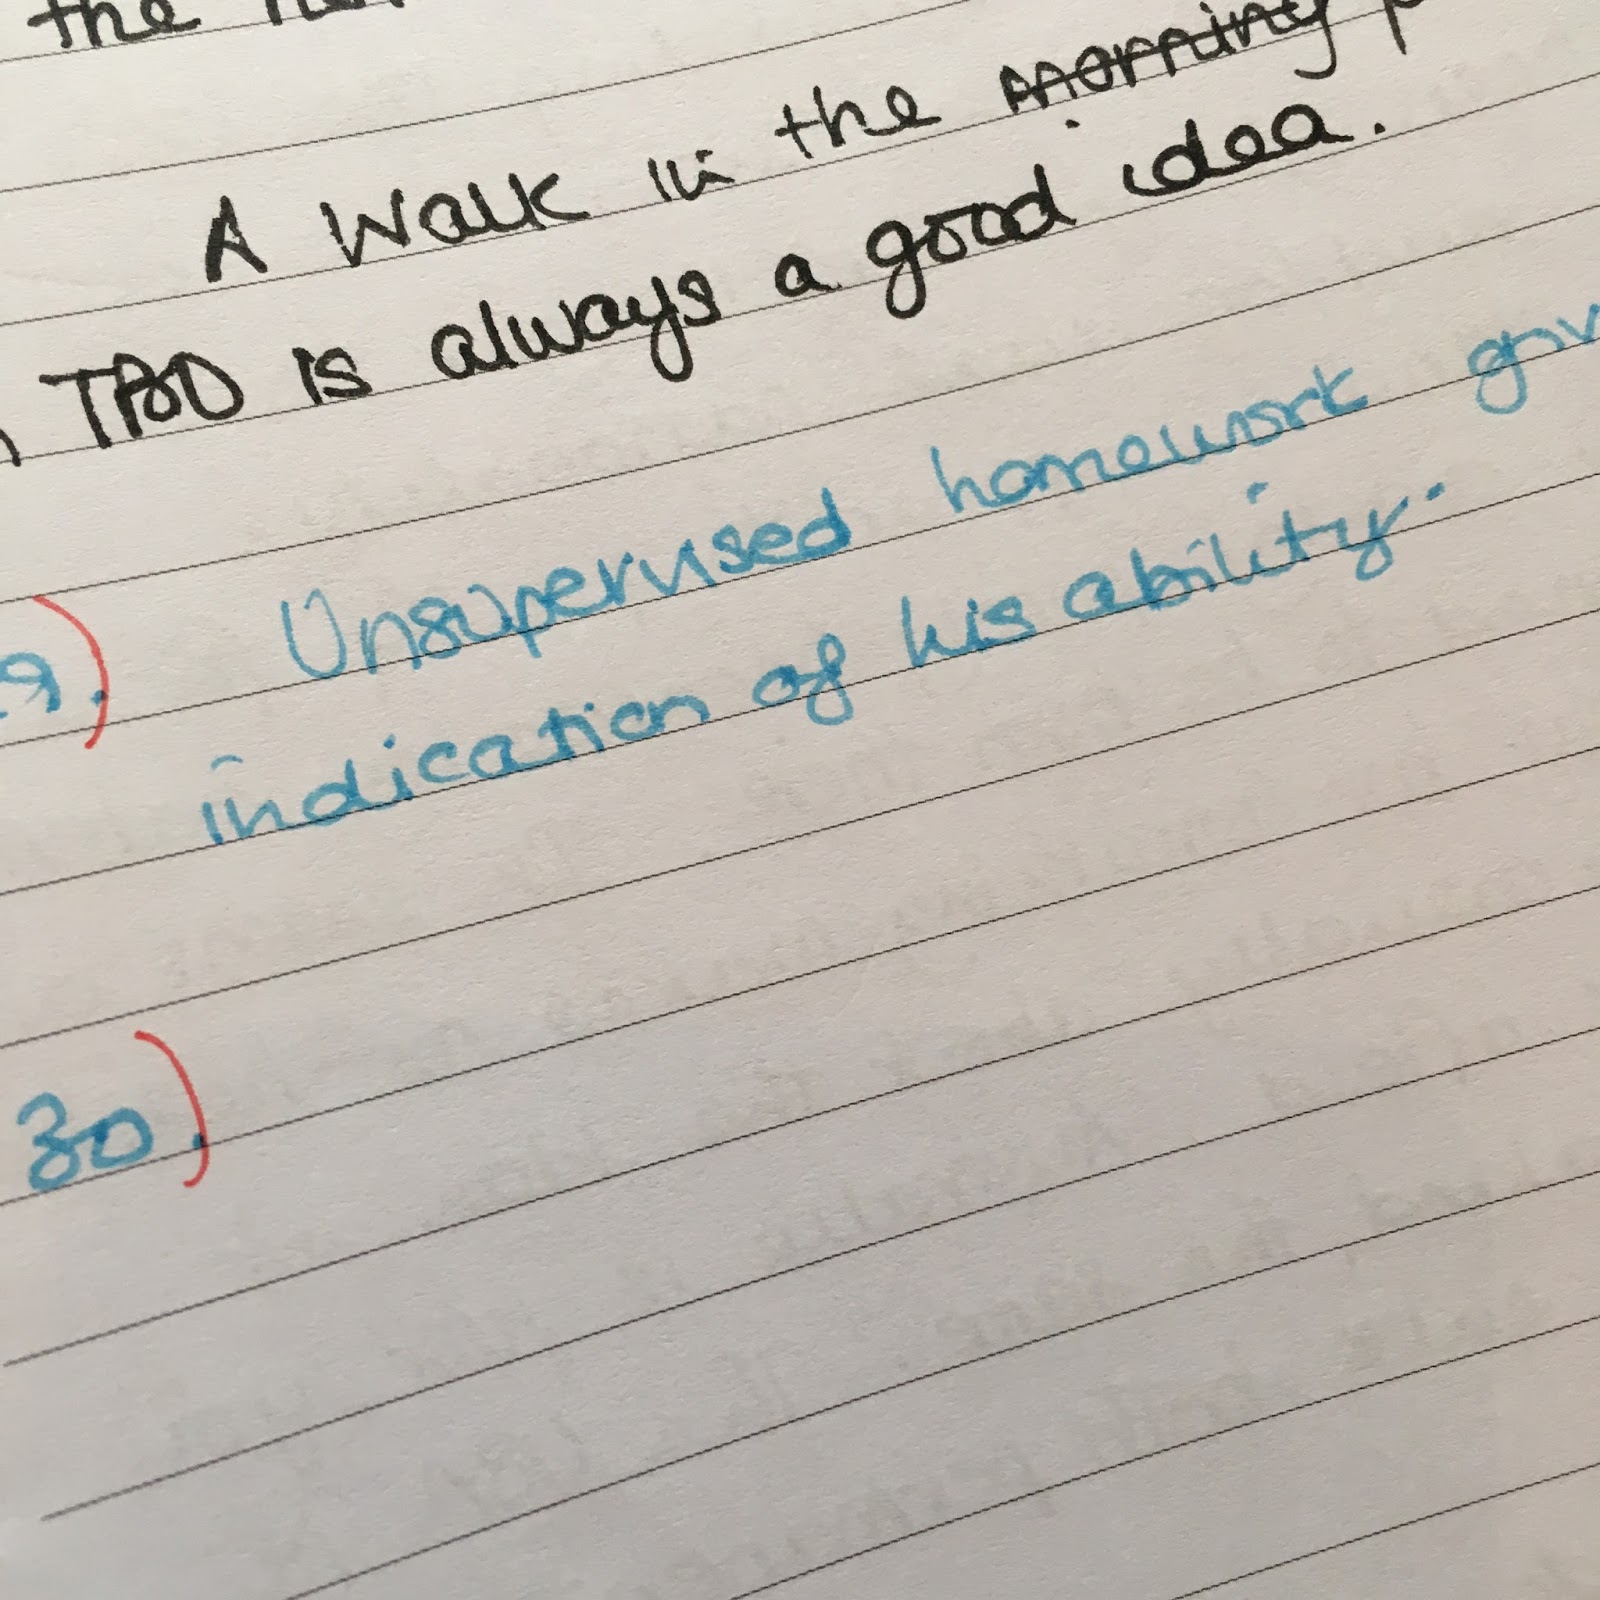 the
A walk in the morning
TBD is always a good idea.
9.) Unsupervised homework
indication of his ability.
30.)